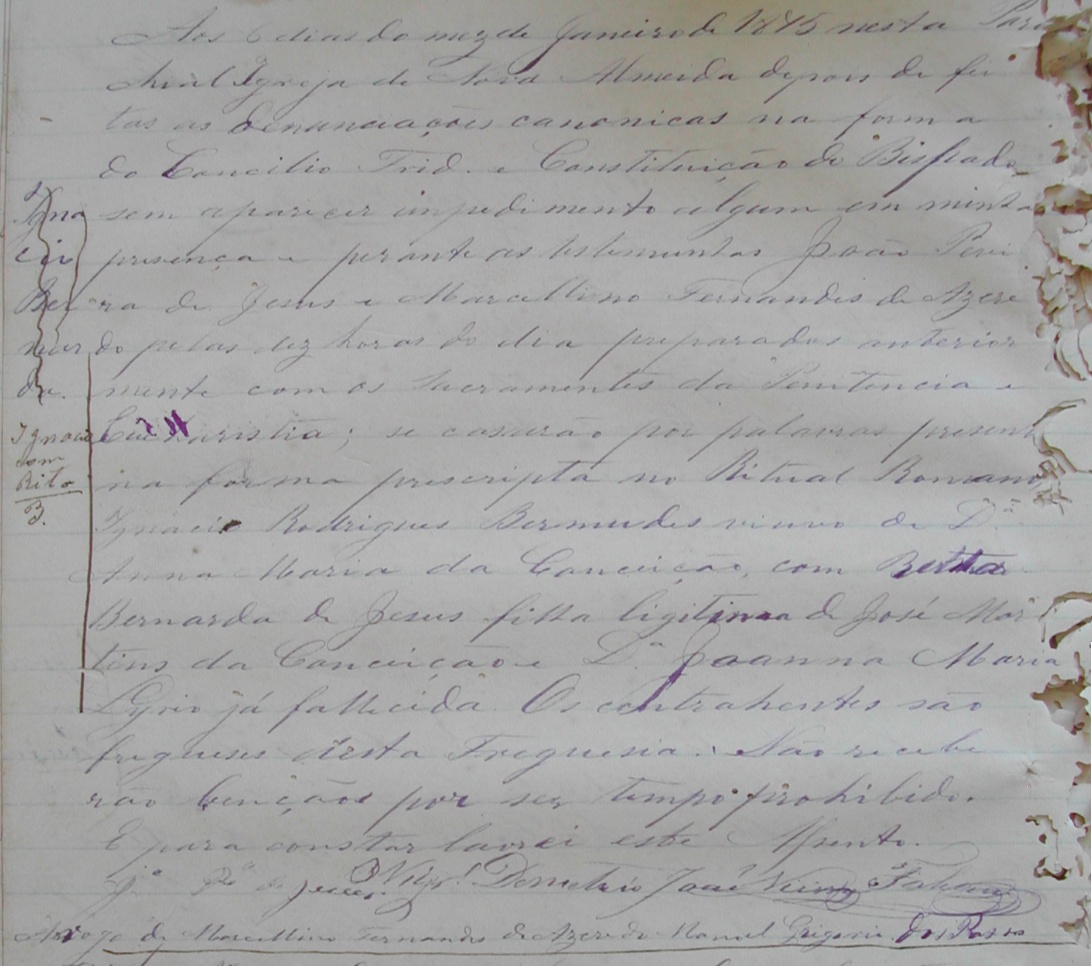 Aos 6 dias do mez de Janeiro de 1875 nesta Paro
chial Igreja de Nova Almeida depois de fei
tas as denunciações canonicas na forma
do Concilio Trid. e Constituição do Bispado
sem aparecer impedimento algum em minha
presença e perante as testemunhas João Perei
ra de Jesus e Marcellino Fernandes de Azere
do pelas dez horas do dia preparados anterior
mente com os Sacramentos da Penitencia e
Eucharistia; se casarão por palavras present
na forma prescripta no Ritual Romano
Ignacio Rodrigues Bermudes viuvo de D.ª
Anna Maria da Conceição, com
Bernarda de Jesus filha ligitima de José Mar
tins da Conceição e D.ª Joanna Maria
Lyrio já fallecida. Os contrahentes são
fregueses desta Freguesia. Não recebe
rão bençãos por ser tempo prohibido.
E para constar lavrei este Assento.
Vigr.º Demetrio José
Arogo de Marcellino Fernandes de Azeredo Manoel Grigorio dos Passos
Igna
cio
Ber
mu
de.
Ignacio
com
Rita
B.